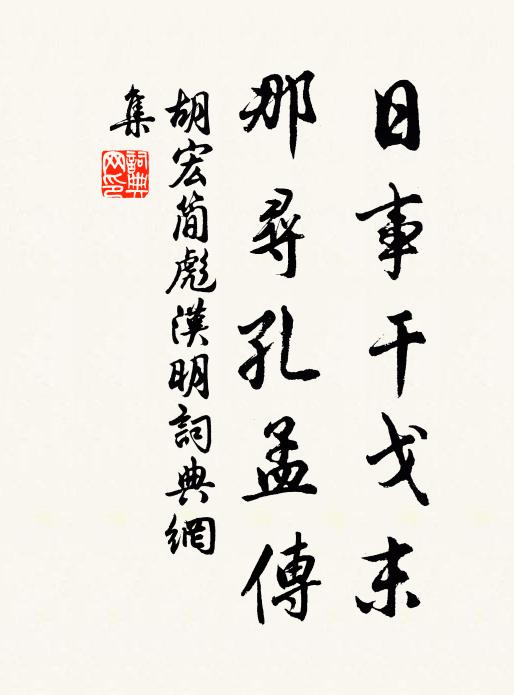 日事干戈末
那尋孔孟傳
胡宏簡彪漢明詞典網
集
詞典
网印